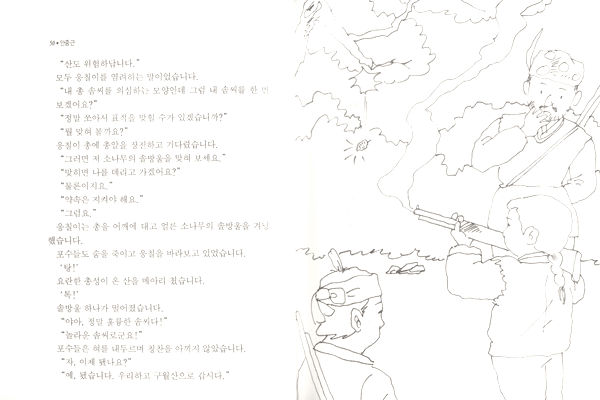 50 • 안중근
"산도 위험하답니다."
모두 응칠이를 염려하는 말이었습니다.
"내 총 솜씨를 의심하는 모양인데 그럼 내 솜씨를 한 번
보겠어요?"
"정말 쏘아서 표적을 맞힐 수가 있겠습니까?"
"뭘 맞혀 볼까요?"
응칠이 총에 총알을 장전하고 기다렸습니다.
"그러면 저 소나무의 솔방울을 맞혀 보세요."
"맞히면 나를 데리고 가겠어요?"
"물론이지요."
"약속은 지켜야 해요."
"그럼요."
응칠이는 총을 어깨에 대고 얼른 소나무의 솔방울을 겨냥
했습니다.
포수들도 숨을 죽이고 응칠을 바라보고 있었습니다.
'탕!'
요란한 총성이 온 산을 메아리 쳤습니다.
'톡!'
솔방울 하나가 떨어졌습니다.
"야아, 정말 훌륭한 솜씨다!"
"놀라운 솜씨로군요!"
포수들은 혀를 내두르며 칭찬을 아끼지 않았습니다.
"자, 이제 됐나요?"
"예, 됐습니다. 우리하고 구월산으로 갑시다."